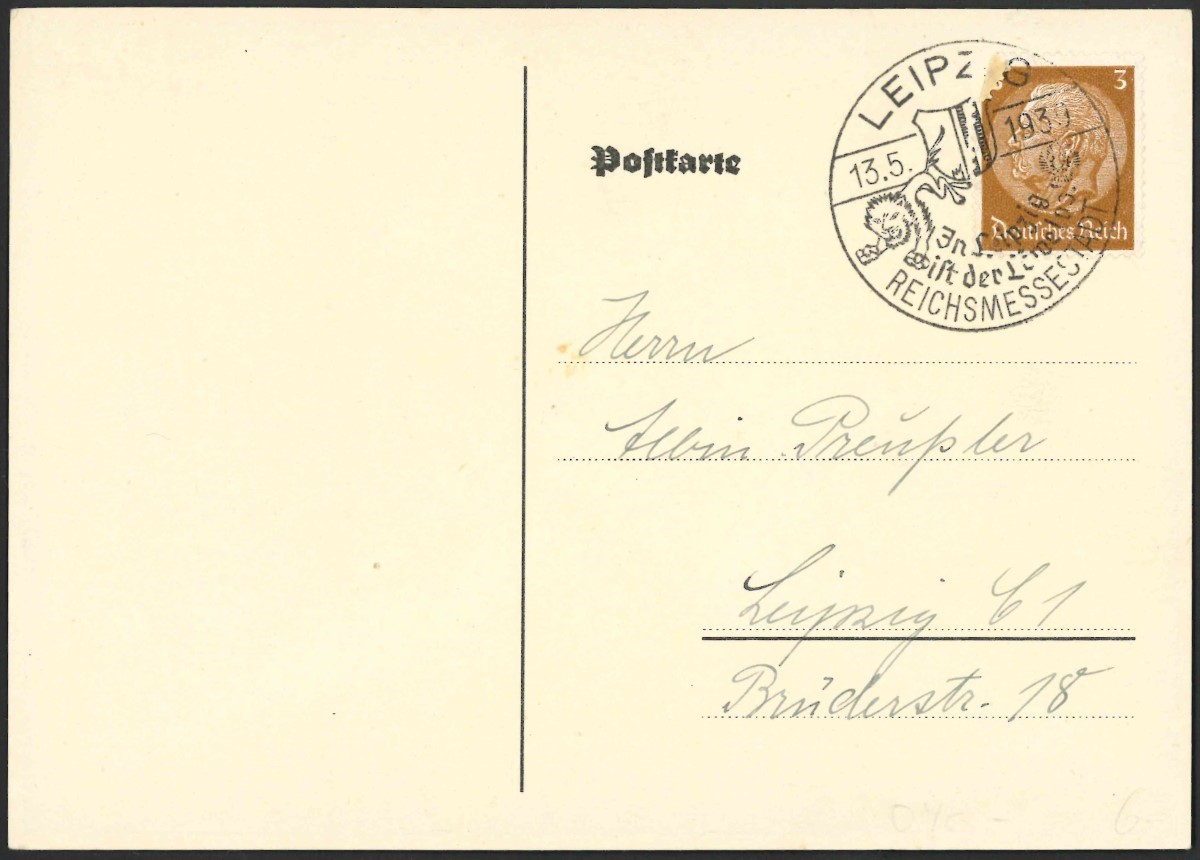 LEIPZIG
13.5. 1939
In Leipzig
ist der Löwe los
REICHSMESSESTADT
3
Deutsches Reich
Postkarte
Herrn
Albin Preußler
Leipzig C 1
Brüderstr. 18
6-